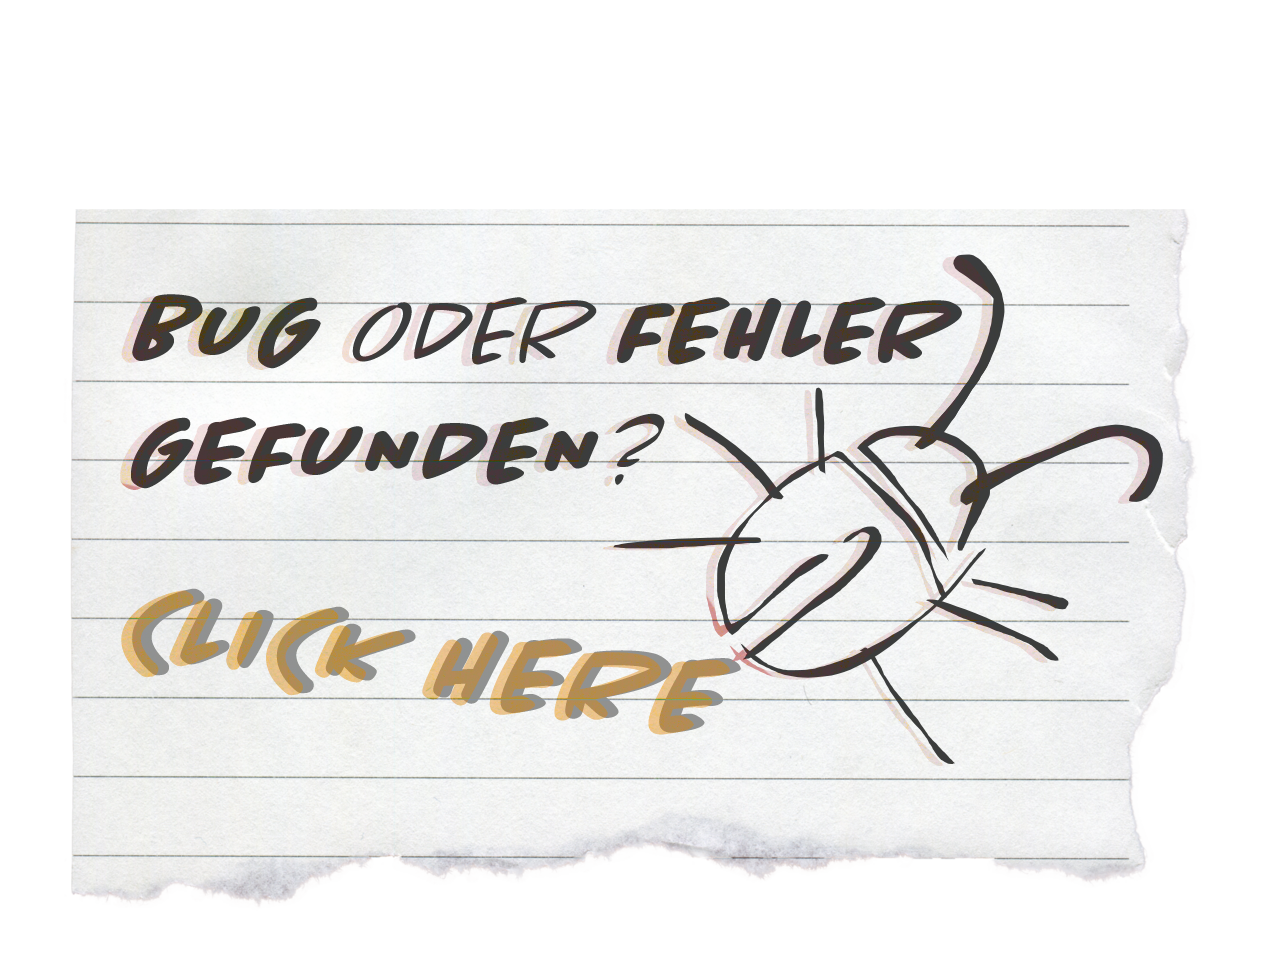 BUG ODER FEHLER
GEFUNDEN?
CLICK HERE